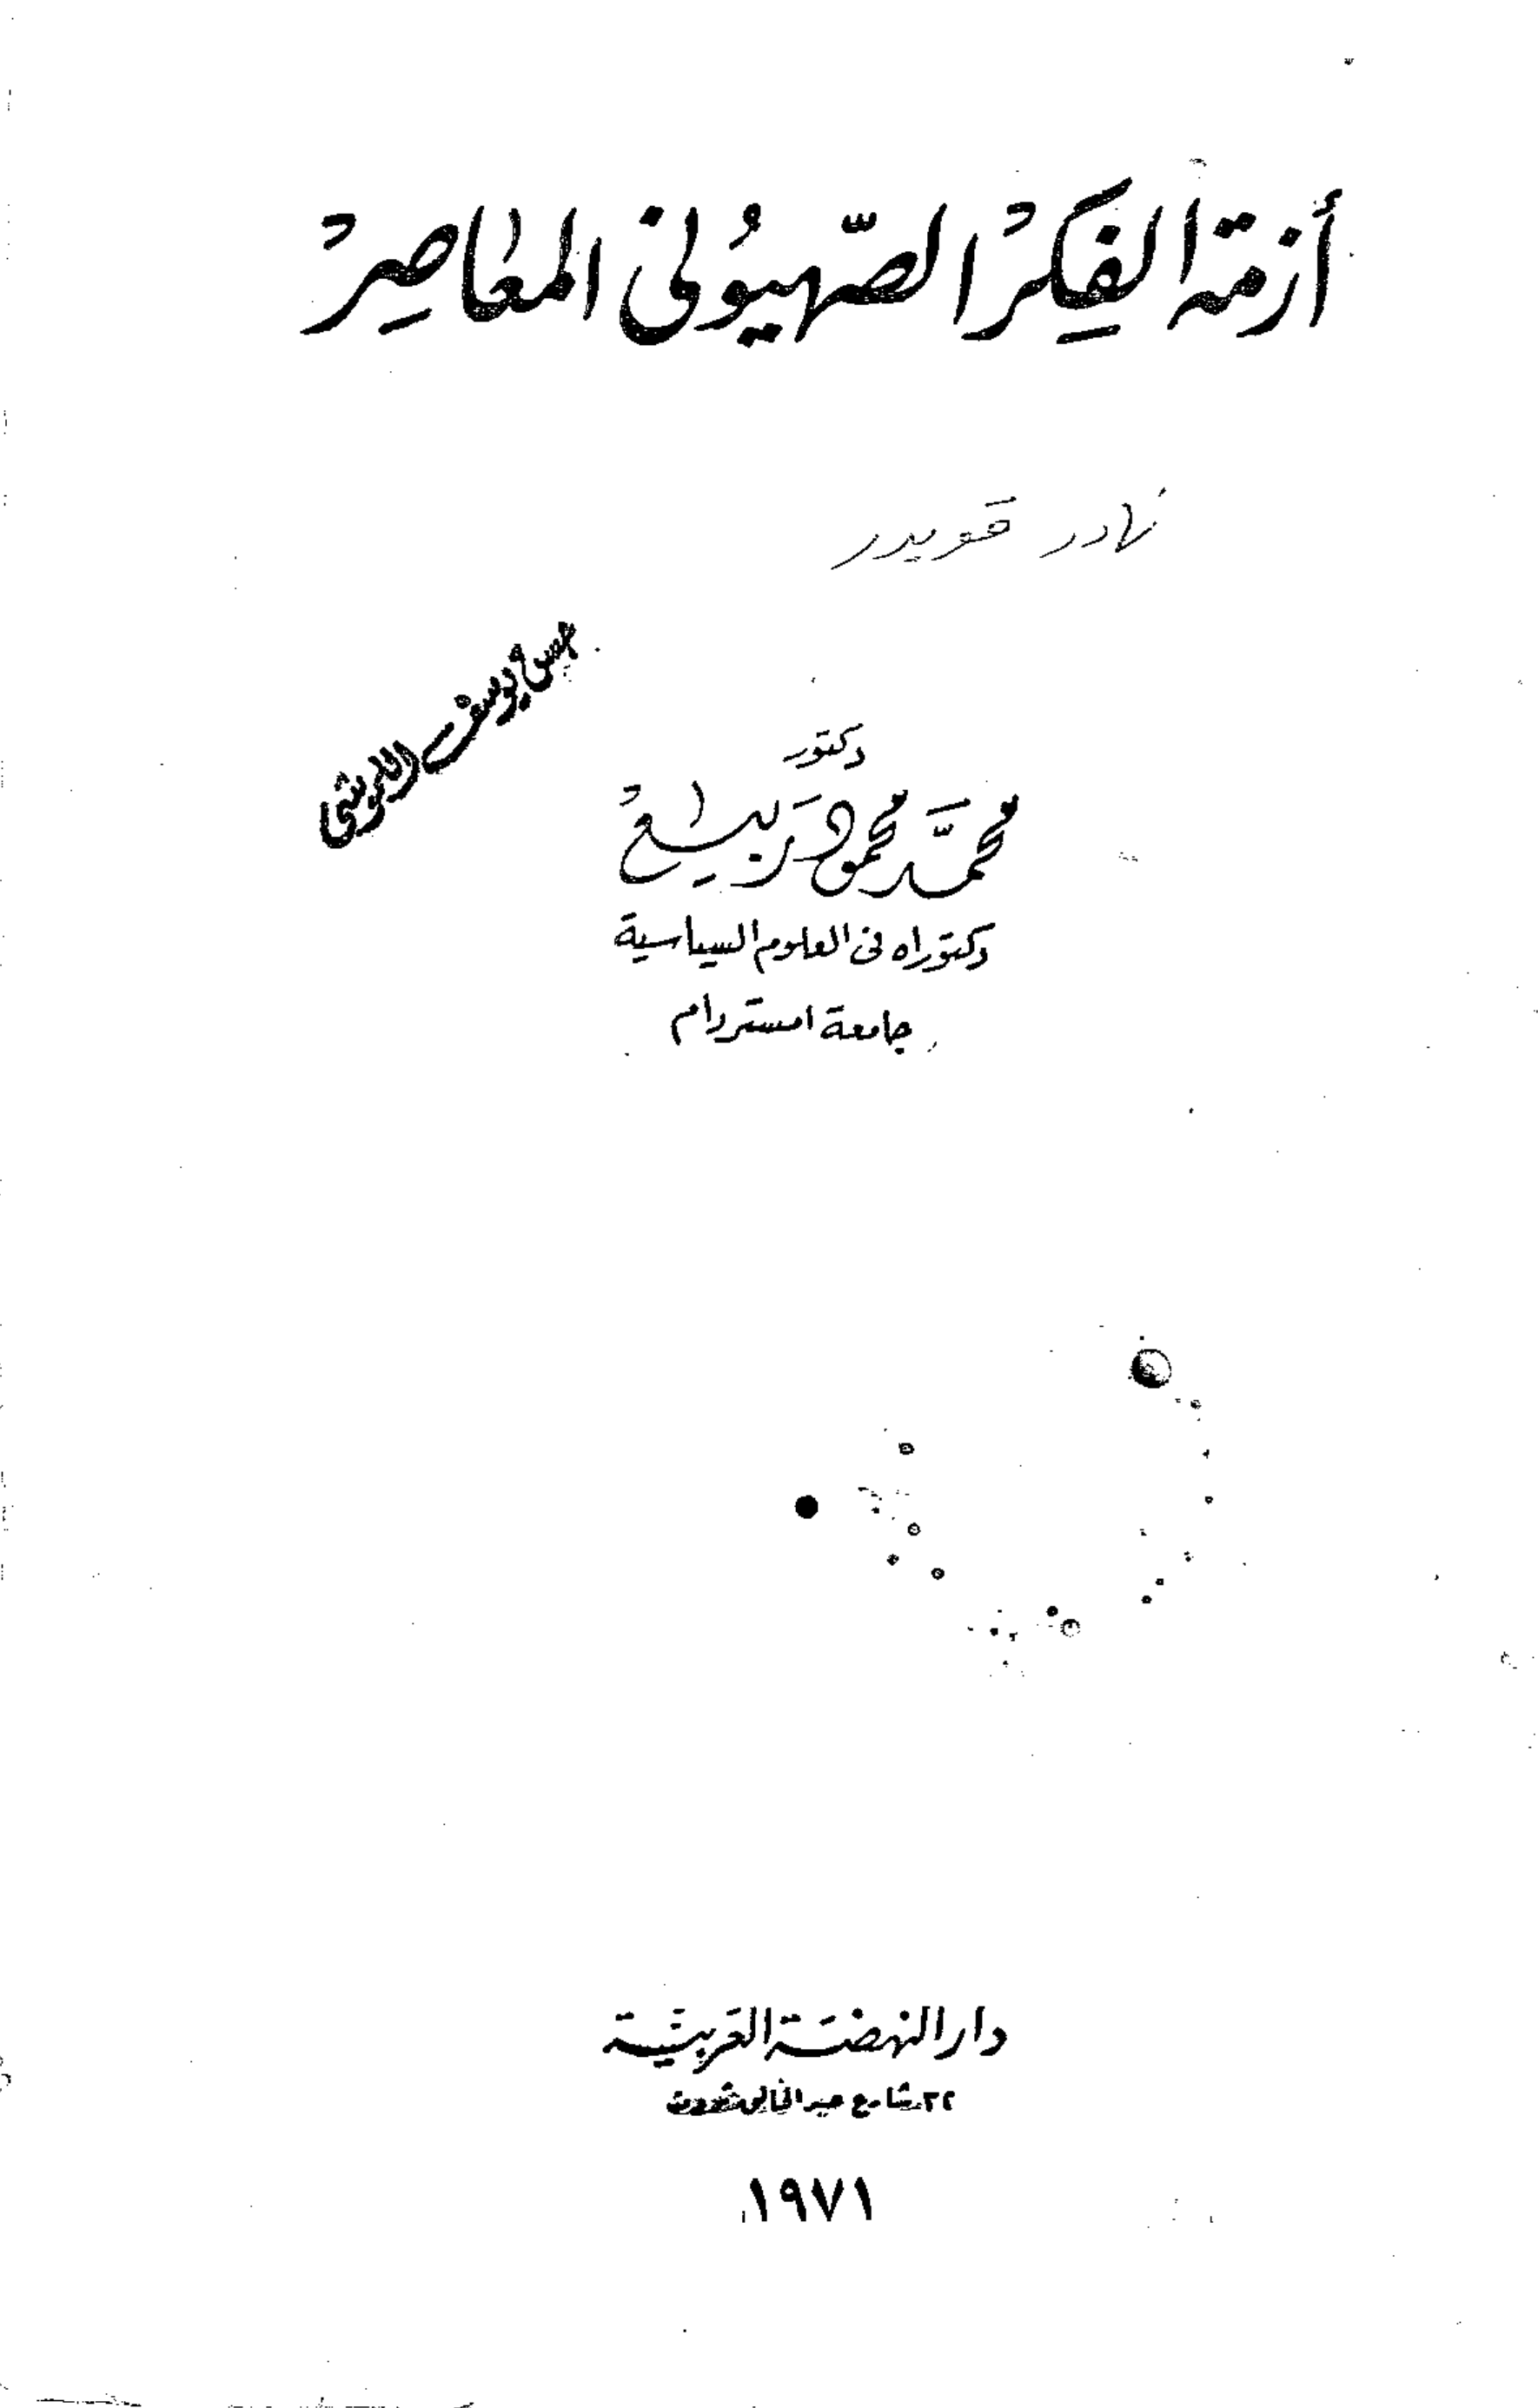 أزمة الفِكرْ الصّهيُونى المعَاصِرْ
نادر قويدر
يوسف
دكتور
محمَّد محمُود رَبيعْ
دكتوراه فى العلوم السياسية
جامعة امستردام
دار النهضَة العَربيَّية
٣٢ شارع عبد الخالق ثروت
١٩٧١